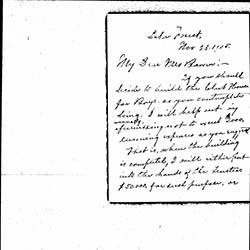 Lake Forest,
Nov 22. 1
My Dear Mrs
If you should
decide to build the Club House
for Boys as you contemplate
doing. I will help out in
furnishing not to exceed
running expenses as you
That is, when the building
is completed, I will either put
into the hands of the Trustees
$5000 for such purpose, or